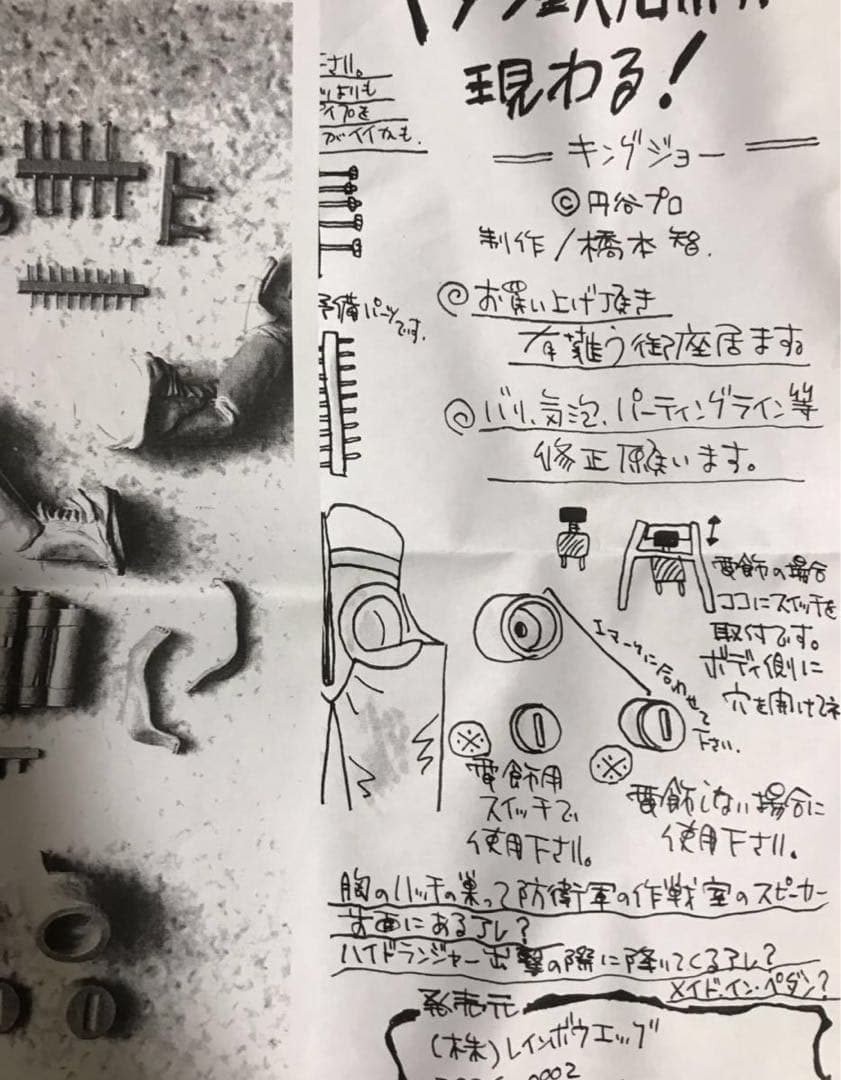 現わる!
キングジョー
©円谷プロ
制作/橋本智.
さい。
よりも
がイイカも.
予備パーツです.
◎お買い上げ頂き
有難う御座居ます。
◎バリ、気泡、パーティングライン等
修正願います。
電飾の場合
ココにスイッチを
取付です。
ボディ側に
穴を開けてネ
エマークに合わせて
下さい.
※
電飾用
スイッチで、
使用下さい。
※
電飾しない場合に
使用下さい.
胸のハッチの巣って防衛軍の作戦室のスピーカー
前面にあるアレ?
ハイドランジャー出撃の際に降りてくるアレ?
メイド・イン・ペダン?
発売元
(株)レインボウエッグ
0002